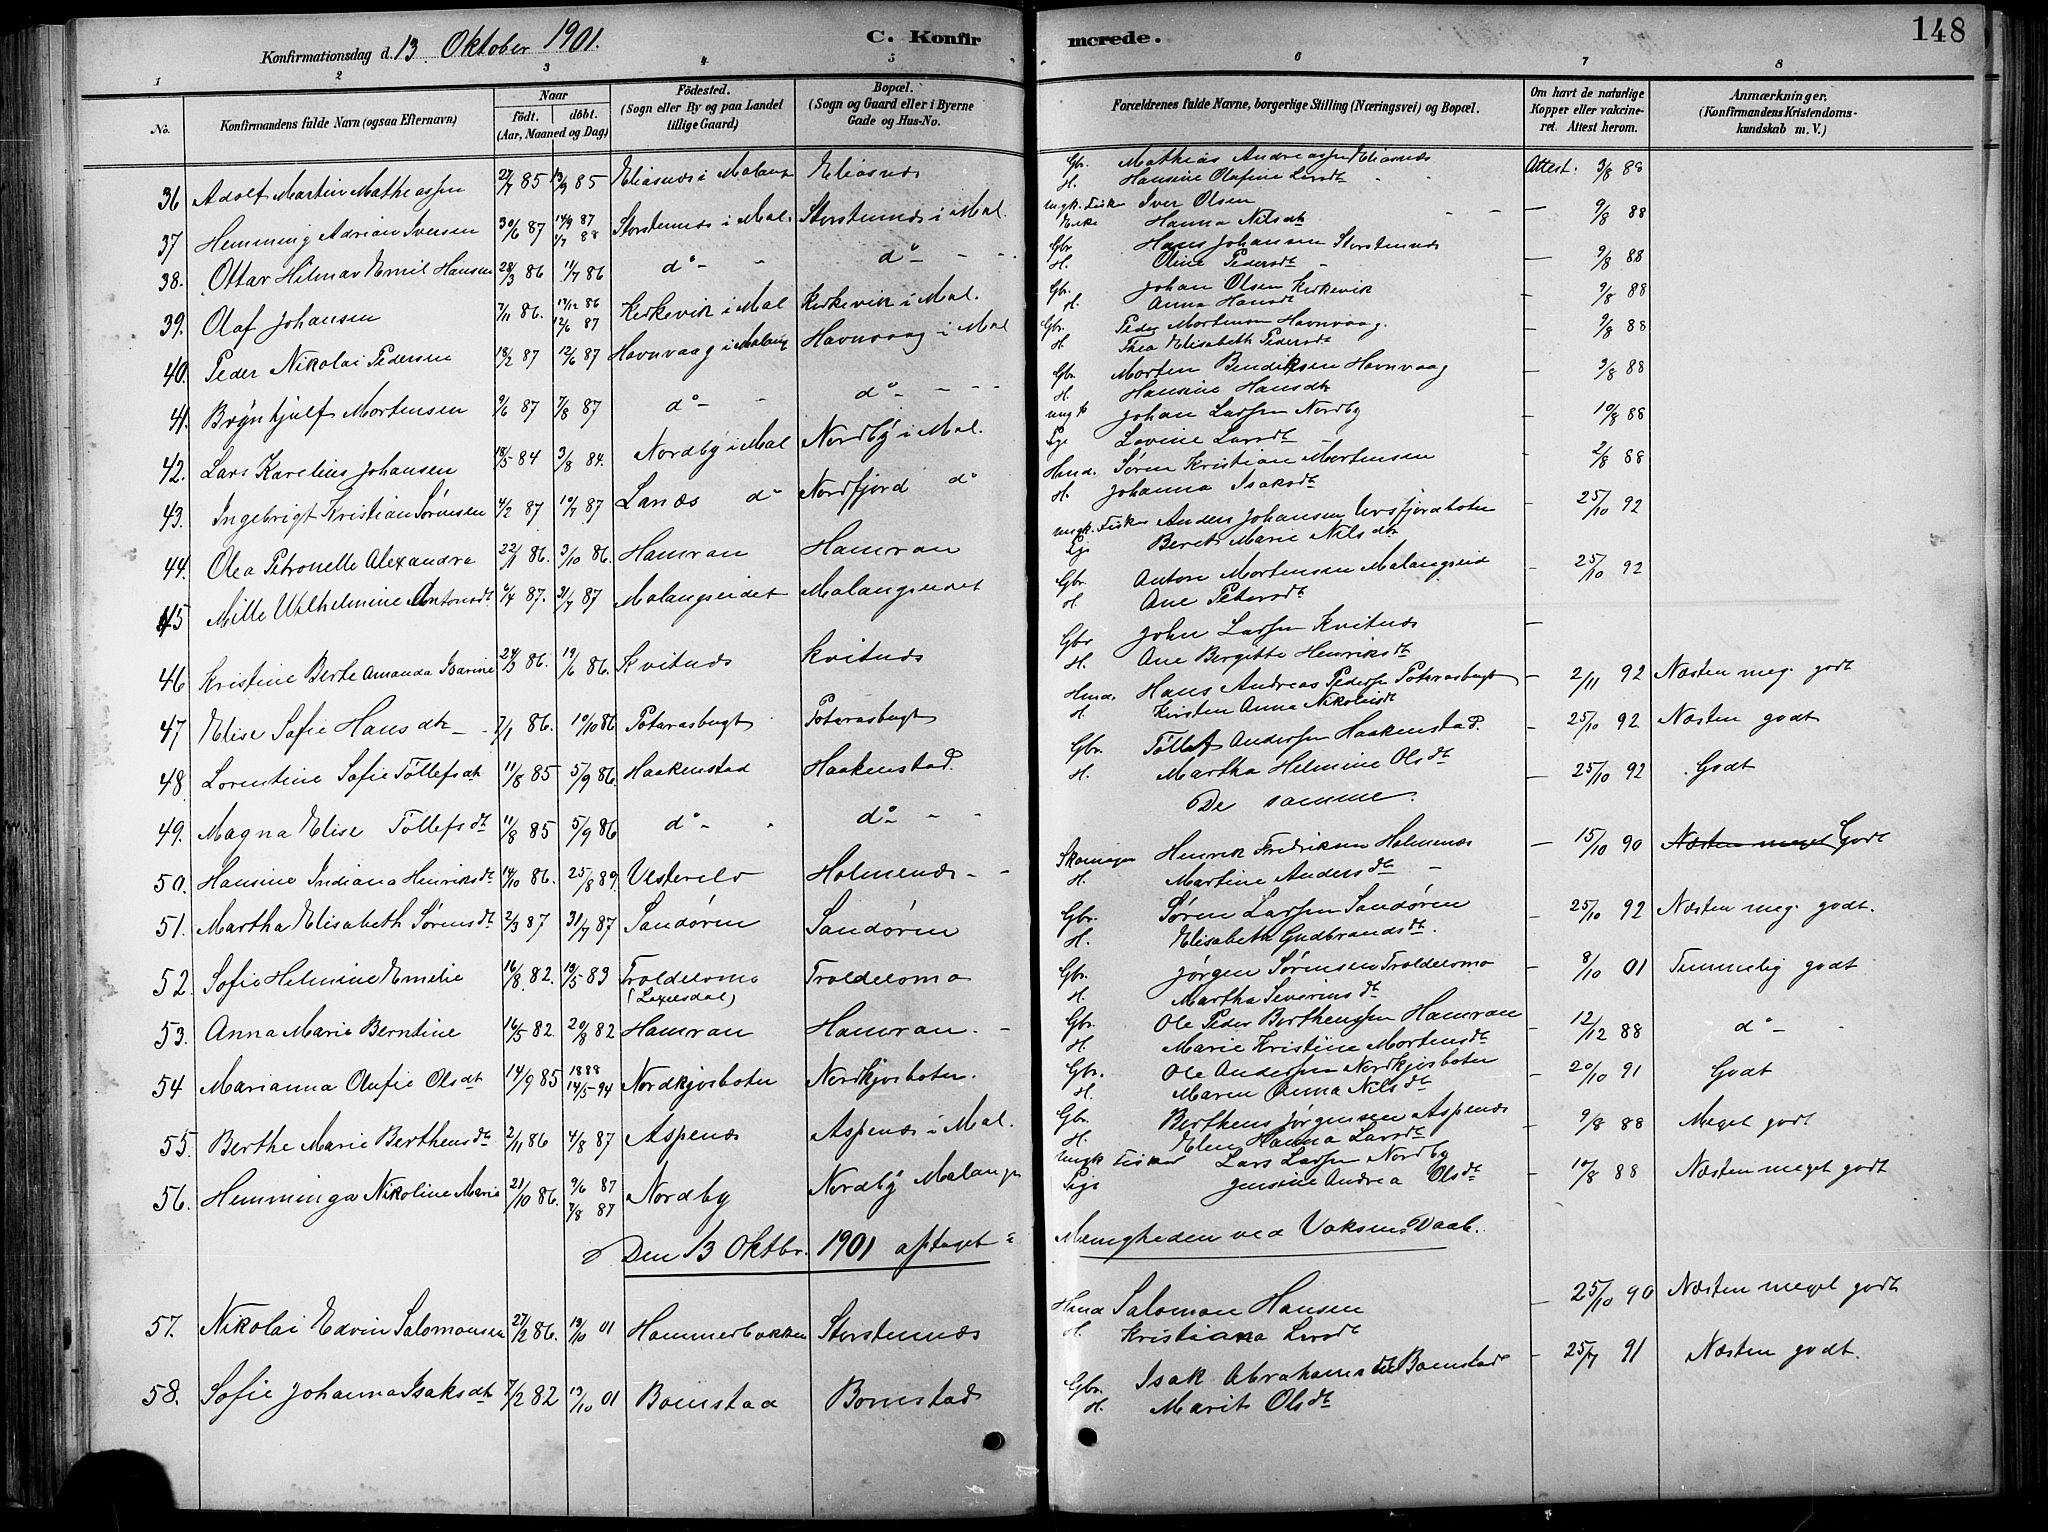 148
Konfirmationsdag d. 13. Oktober 1901. C. Konfirmerede.
1 2 3 4 5 6 7 8
No. Konfirmandens fulde Navn (ogsaa Efternavn) Naar født. døbt. (Aar, Maaned og Dag) Fødested. (Sogn eller By og paa Landet tillige Gaard) Bopæl. (Sogn og Gaard eller i Byerne Gade og Hus-No. Forældrenes fulde Navne, borgerlige Stilling (Næringsvei) og Bopæl. Om havt de naturlige Kopper eller vakcineret. Attest herom. Anmærkninger. (Konfirmandens Kristendomskundskab m. V.)
36 Adolf Martin Matheassen 27/7 85 13/9 85 Eliasnes i Malang Eliasnes Gbr. Mathias Andreassen Eliasnes Attest. 3/8 88
H. Hansine Olafine Larsdt
37 Hemming Adrian Iversen 30/6 87 14/9 87 1/7 88 Storstennes i Mal. Storstennes i Mal. ungk. Fisker Iver Olsen - 9/8 88
Enke Hanna Nilsdt
38. Ottar Hilmar Emil Hansen 28/3 86 11/7 86 do - do - Gbr Hans Johansen Storstennes - 9/8 88
H. Oline Pedersdt
39. Olaf Johansen 7/11 86. 19/12 86 12/6 87 Kirkevik i Mal Kirkevik i Mal. Gbr. Johan Olsen Kirkevik - 9/8 88
H Anna Hansdt
40. Peder Nikolai Pedersen 18/2 87 12/6 87 Havnvaag i Malang Havnvaag i Mal Gbr. Peder Mortensen Havnvaag. - 9/8 88
H. Thea Elisabeth Pedersdt
41. Brynhjulf Mortensen 9/6 87 7/8 87 do - do - Gbr. Morten Bendiksen Havnvaag - 3/8 88
H. Hansine Hansdt
42. Lars Karelius Johansen 18/5 84 3/8 84. Nordby i Mal Nordby i Mal. Johan Larssen Nordby - 10/8 88
Pge Lovine Larsdt
43. Ingebrigt Kristian Sørensen 4/2 87 10/7 87 Lanæs do Nordfjord do Hmd. Søren Kristian Mortensen - 2/8 88
H. Johanna Isaksdt
44. Olea Petronelle Alexandra 22/1 86. 3/10 86. Hamran Hamran ungk. Fisker Anders Johansen - 25/10 92
Pge Beret Marie Nilsdt
45 Mille Wilhelmine Antonsdt 9/4 87. 31/7 87 Malangseidet Malangseidet Gbr. Anton Mortensen Malangseid - 25/10 92
H. Ane Petersdt
46 Kristine Berte Amanda Isarine 24/3 86. 19/6 86. Kvitnes Kvitnes Gbr John Larssen Kvitnes -
H. Ane Bergitte Henriksdt
47 Elise Sofie Hansdt - 7/1 86. 10/10 86 Potarasbugt Potarasbugt Hmd. Hans Andreas Peders Potarasbugt - 2/11 92 Næsten meg. godt
H. Kirsten Anna Nikolaisdt
48 Lorentine Sofie Tollefsdt 11/8 85 5/9 86. Haakenstad Haakenstad. Gbr. Tollef Anderssen Haakenstad. - 25/10 92 Næsten godt
H. Martha Helmine Olsdt
49. Magna Elise Tollefsdt 11/8 85 5/9 86 do - do - De samme. - 25/10 92 Godt
50. Hansine Indiana Henriksdt 14/10 86. 25/8 89. Vesterelv Holmenes - Henrik Fredriksen Holmenes - 15/10 90 Næsten meget Godt
H. Martine Andersdt -
51. Martha Elisabeth Sørensdt 2/3 87 31/7 87 Sandøren Sandøren Gbr. Søren Larssen Sandøren - 25/10 92 Næsten meg. godt.
H. Elisabeth Gudbrandsdt.
52. Sofie Helmine Emelie 16/8 82. 19/5 83 Troldeloma (Laxelsdal) Troldeloma Gbr. Jørgen Sørensen Troldeloma - 8/10 01 Temmelig godt
H. Martha Severinsdt
53. Anna Marie Berntine 16/5 82 20/8 82 Hamran Hamran. - Gbr. Ole Peder Berthenssen Hamran - 12/12 88 do -
H. Marie Kristine Mortensdt
54 Marianna Olufie Olsdt 14/9 85 1888 14/5 94 Nordkjosboten Nordkjosboten. Gbr. Ole Anderssen Nordkjosboten - 20/10 91 Godt
H. Maren Anna Nilsdt
55. Berthe Marie Berthensdt 2/11 86 4/8 87 Aspenæs Aspenæs i Mal. Gbr. Berthens Jørgensen Aspenæs - 9/8 88 Meget godt
H. Elen Hanna Larsdt
56. Hemminga Nikoline Marie 21/10 86. 9/6 87 7/8 87 Nordby Nordby Malangen ungk Fisker Lars Larssen Nordby - 10/8 88 Næsten meget godt
Pige Jensine Andrea Olsdt
Den 13 Oktbr. 1901 optaget i Menigheden ved Voksens Daab.
57. Nikolai Edvin Salomonsen 27/2 86. 13/10 01 Hammerbakken Storstennæs Hmd Salomon Hansen - 25/10 90 Næsten meget godt
H. Kristiana Larsdt
58. Sofie Johanna Isaksdt 7/2 82 13/10 01 Bomstad Bomstad Gbr. Isak Abrahams Bomstad - 25/7 91 Næsten godt.
H. Marit Olsdt